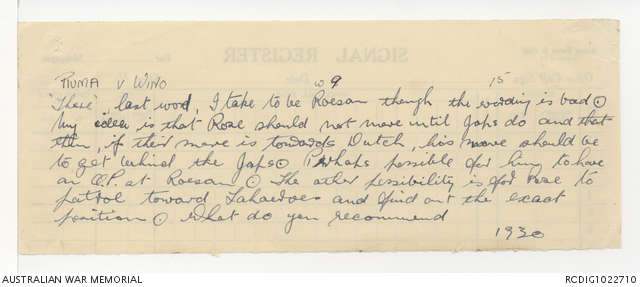 SIGNAL REGISTER
PIUMA V WINO 09 15
'There', last word, I take to be Roesan though the wording is bad ⊙
My idea is that Rose should not move until Japs do and that
then, if their move is towards Dutch, his move should be
to get behind the Japs ⊙ Perhaps possible for him to have
an O.P. at Roesan ⊙ The other possibility is for Rose to
patrol toward and find out the exact
position ⊙ What do you recommend
1930
AUSTRALIAN WAR MEMORIAL RCDIG1022710